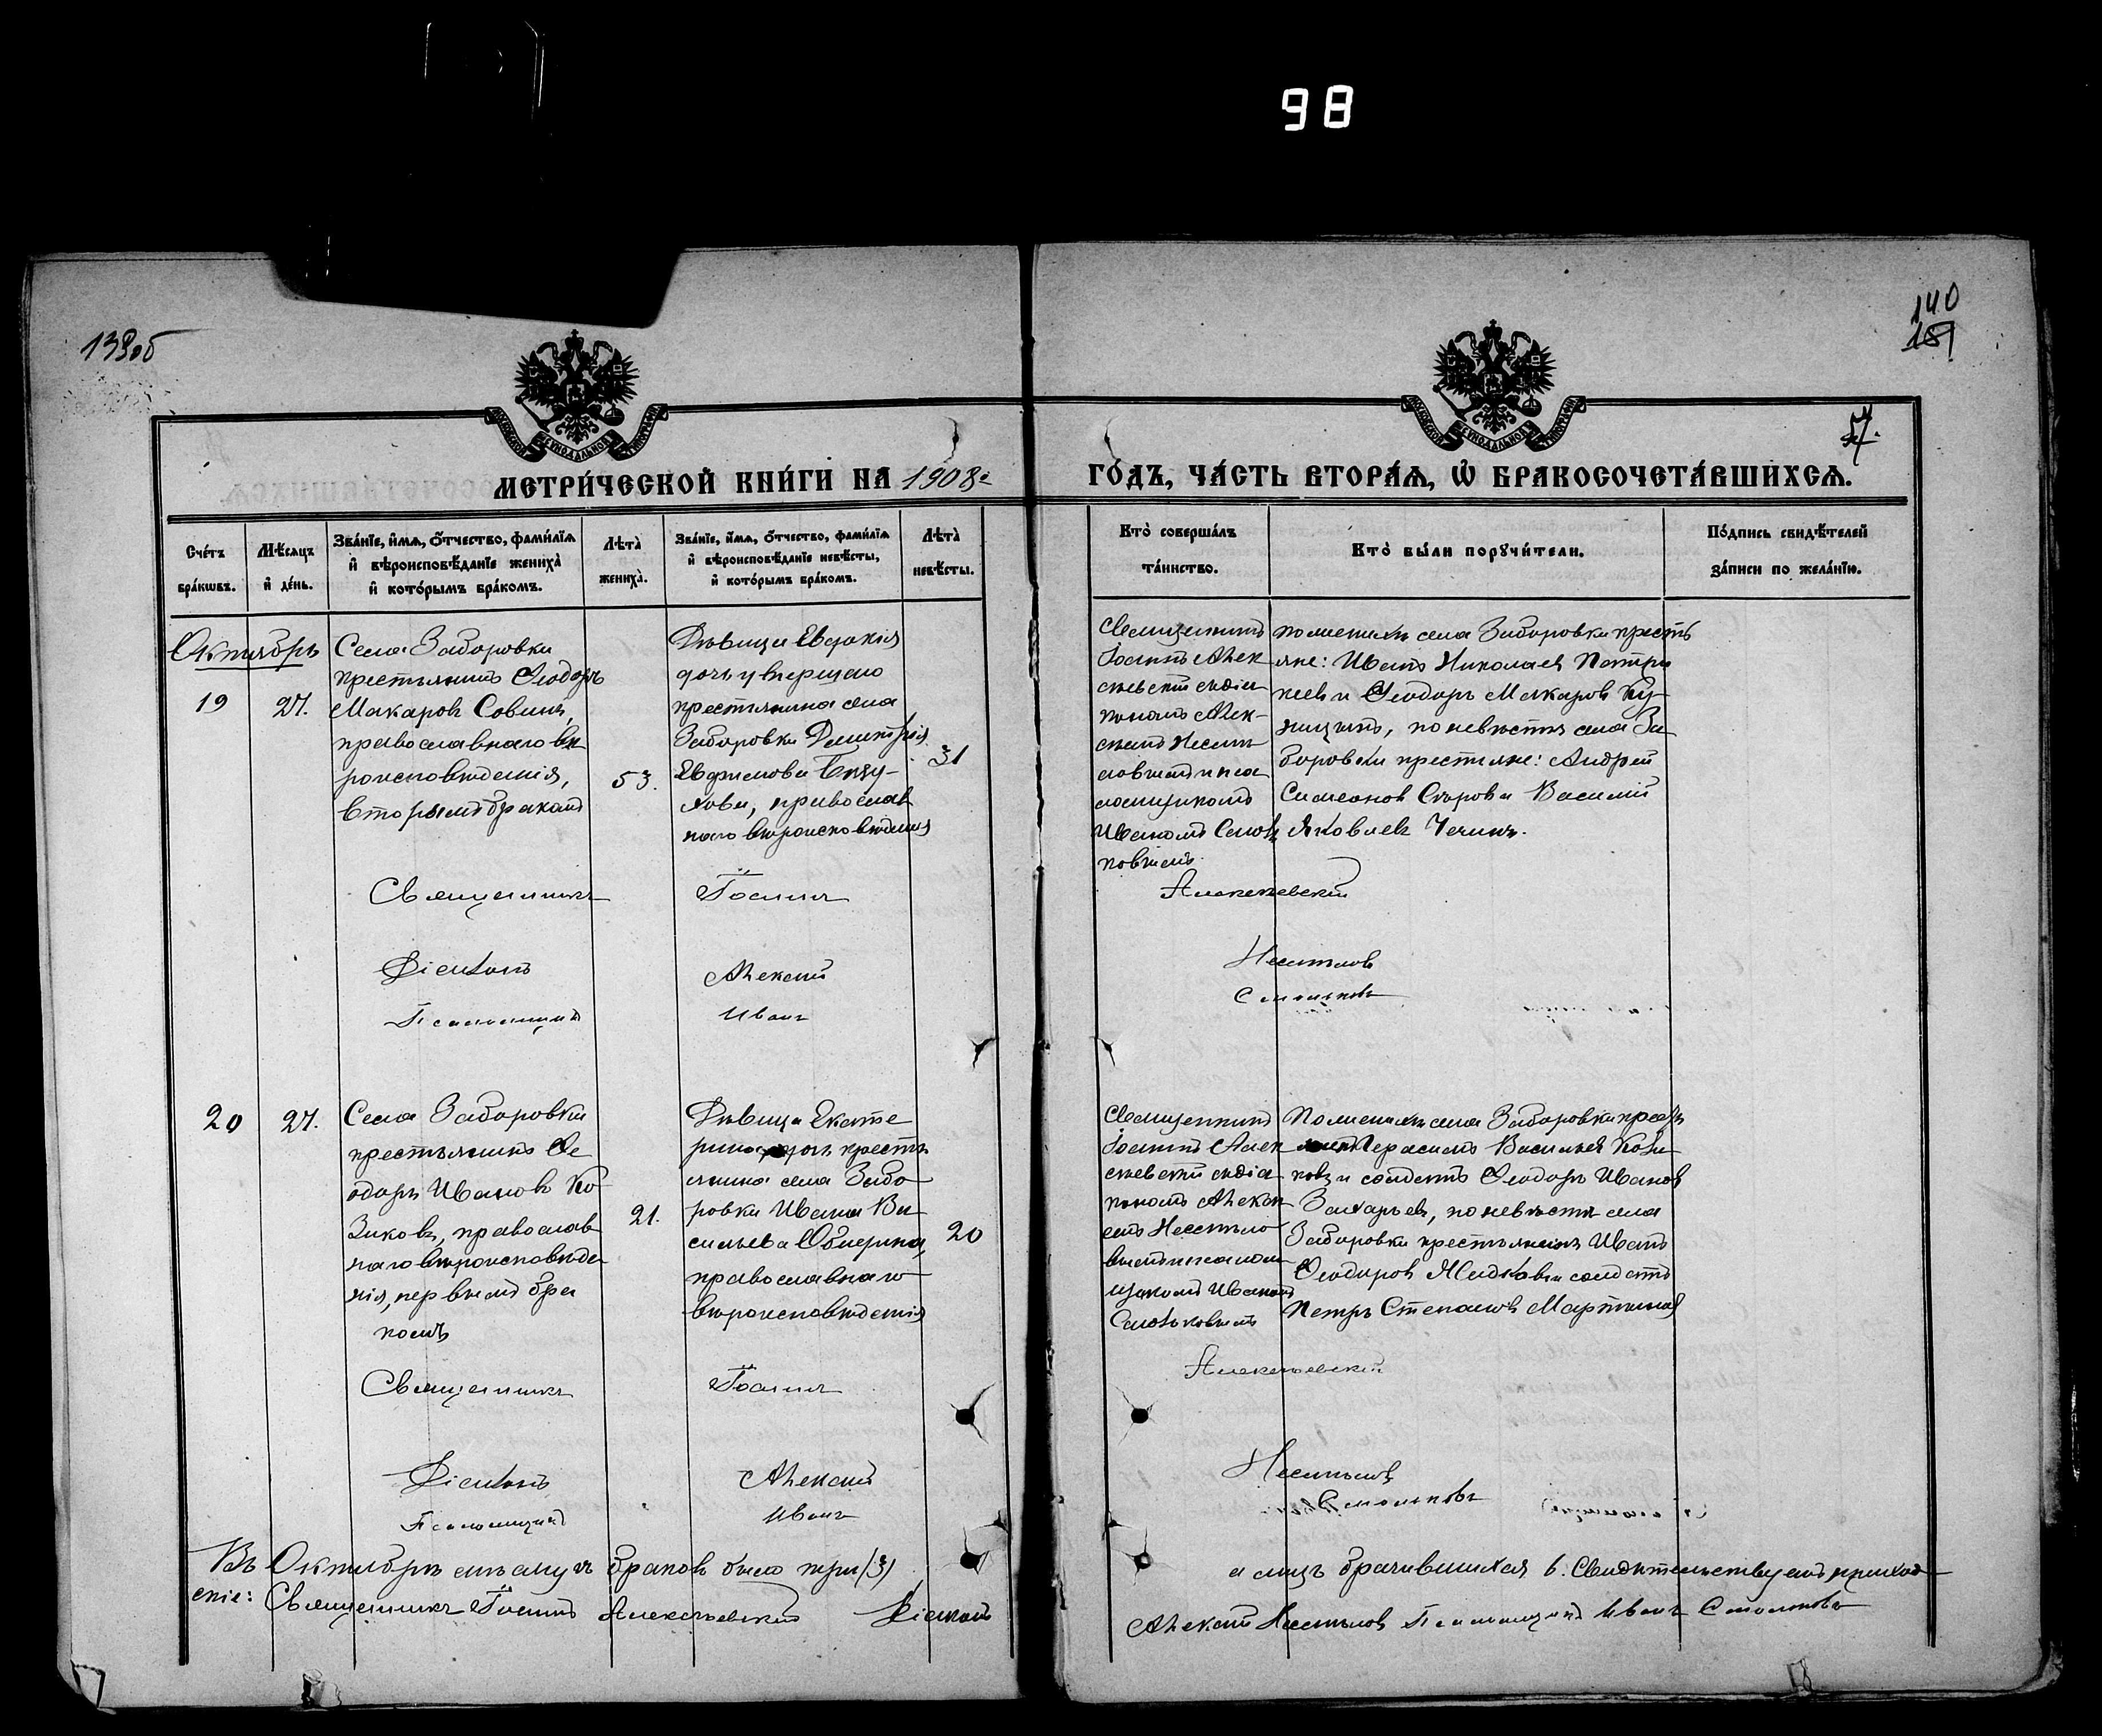 98
139об
140
151
7.
МЕТРИ́ЧЕСКОЙ КНИ́ГИ НА 1908 г.
ГО́ДЪ, ЧА́СТЬ ВТОРА́Ѧ, Ѽ БРАКОСОЧЕТА́ВШИХСѦ.
Сче́тъ бра́кѡвъ.
Мѣ́сѧцъ и҆ де́нь.
Зва́нїе, и҆́мѧ, ѻ҆́тчество, фами́лїѧ и҆ вѣроисповѣ́данїе жениха̀ и҆ кото́рымъ бра́комъ.
Лѣта̀ жениха̀.
Зва́нїе, и҆́мѧ, ѻ҆́тчество, фами́лїѧ и҆ вѣроисповѣ́данїе невѣ́сты, и҆ кото́рымъ бра́комъ.
Лѣта̀ невѣ́сты.
Кто̀ соверша́лъ та́инство.
Кто̀ бы́ли порꙋчи́тели.
По́дпись свидѣ́телей за́писи по жела́нїю.
Октябрь
19
27.
Села Заборовки
крестьянинъ Ѳеодоръ
Макаровъ Совинъ,
православнаго вѣ
роисповѣданія,
вторымъ бракомъ
53.
Дѣвица Евдокія
дочь умершаго
крестьянина села
Заборовки Димитрія
Евфимова
православ
наго вѣроисповѣданія
31
Священникъ
Іоаннъ Алек
сѣевскій съ діа
кономъ Алек
сѣемъ Несмѣ
ловымъ и пса
ломщикомъ
Иваномъ Смоль
ковымъ.
по женихѣ села Заборовки кресть
яне: Иванъ Николаевъ Петри
кеевъ и Ѳеодоръ Макаровъ Ку
ницынъ, по невѣстѣ села За
боровки крестьяне: Андрей
Симеоновъ Сѣровъ и Василій
Яковлевъ Чечинъ.
Священникъ Іоаннъ Алексѣевскій
Діаконъ Алексій Несмѣловъ
Псаломщикъ Иванъ Смольковъ
20
27.
Села Заборовки
крестьянинъ Ѳе
одоръ Ивановъ Ко
зиковъ, православ
наго вѣроисповѣда
нія, первымъ бра
комъ
21.
Дѣвица Екате
рина дочь кресть
янина села Забо
ровки Ивана Ва
сильева
православнаго
вѣроисповѣданія
20
Священникъ
Іоаннъ Алек
сѣевскій съ діа
кономъ Алексѣ
емъ Несмѣло
вымъ и псалом
щикомъ Иваномъ
Смольковымъ
По женихѣ села Заборовки кресть
Герасимъ Васильевъ Кози
ковъ и солдатъ Ѳеодоръ Ивановъ
Захарьевъ, по невѣстѣ села
Заборовки крестьянинъ Иванъ
Ѳеодоровъ Жидковъ и солдатъ
Петръ Степановъ Мартыновъ
Священникъ Іоаннъ Алексѣевскій
Діаконъ Алексій Несмѣловъ
Псаломщикъ Иванъ Смольковъ
Въ Октябрѣ мѣсяцѣ браковъ было три (3) а лицъ брачившихся 6. Свидѣтельствуемъ приход
скіе: Священникъ Іоаннъ Алексѣевскій Діаконъ Алексій Несмѣловъ Псаломщикъ Иванъ Смольковъ